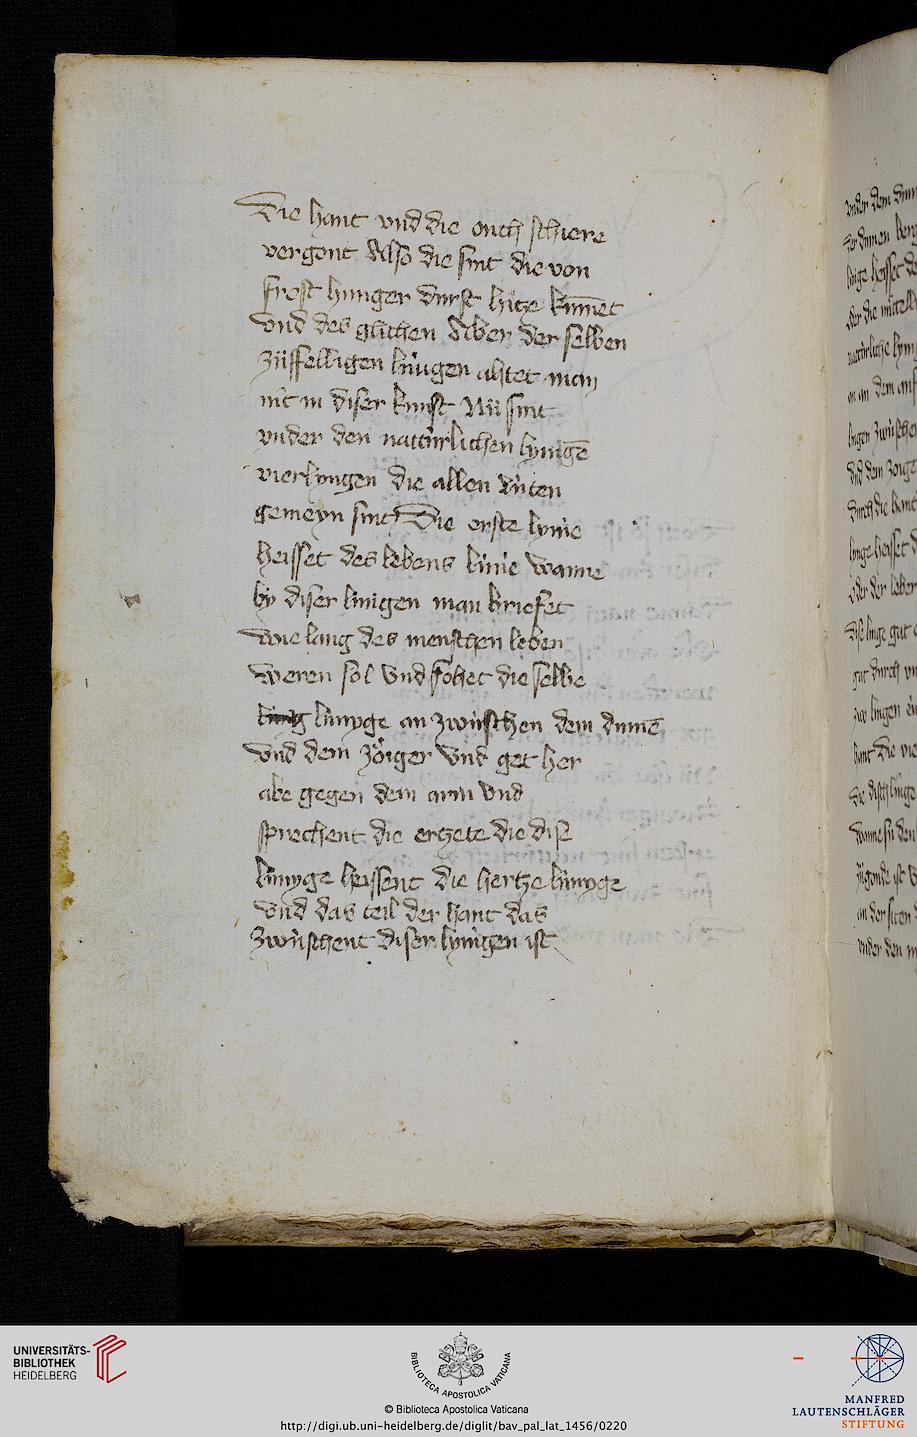 Die hant vnd die ouch schiere
vergent Also die sint die von
frost hunger durst hitze kum̄et
vnd des glichen Aber der selben
züffelligen linigen ahtet man
nit in diser kunst Nü sint
vnder den natturlichen lynigē
vier lynigen die allen lüten
gemeyn sint Die erste lynie
heisset des lebens linie wanne
by diser linigen man briefet
wie lang des menschen leben
weren sol Vnd fohet die selbe
linyge an zwüschen dem dumē
Vnd dem zöiger Vnd get her
abe gegen dem arm Vnd
sprechent die ertzete die dise
linyge heissent die hertze linyge
vnd das teil der hant das
zwüschent diser lynigen ist
vnder dem
linge heisset
der die mittell
natürliche lyni
an dem
lingen zwüschen
vnd dem zoige
durch die hant
linge heisset d
oder der leber
dise linge gat
gat durch
zwo lingen
hant Die vie
die disch linge
wanne sü den
an der siten
vnder den
UNIVERSITÄTS-
BIBLIOTHEK
HEIDELBERG
BIBLIOTECA APOSTOLICA VATICANA
© Biblioteca Apostolica Vaticana
http://digi.ub.uni-heidelberg.de/diglit/bav_pal_lat_1456/0220
MANFRED
LAUTENSCHLÄGER
STIFTUNG